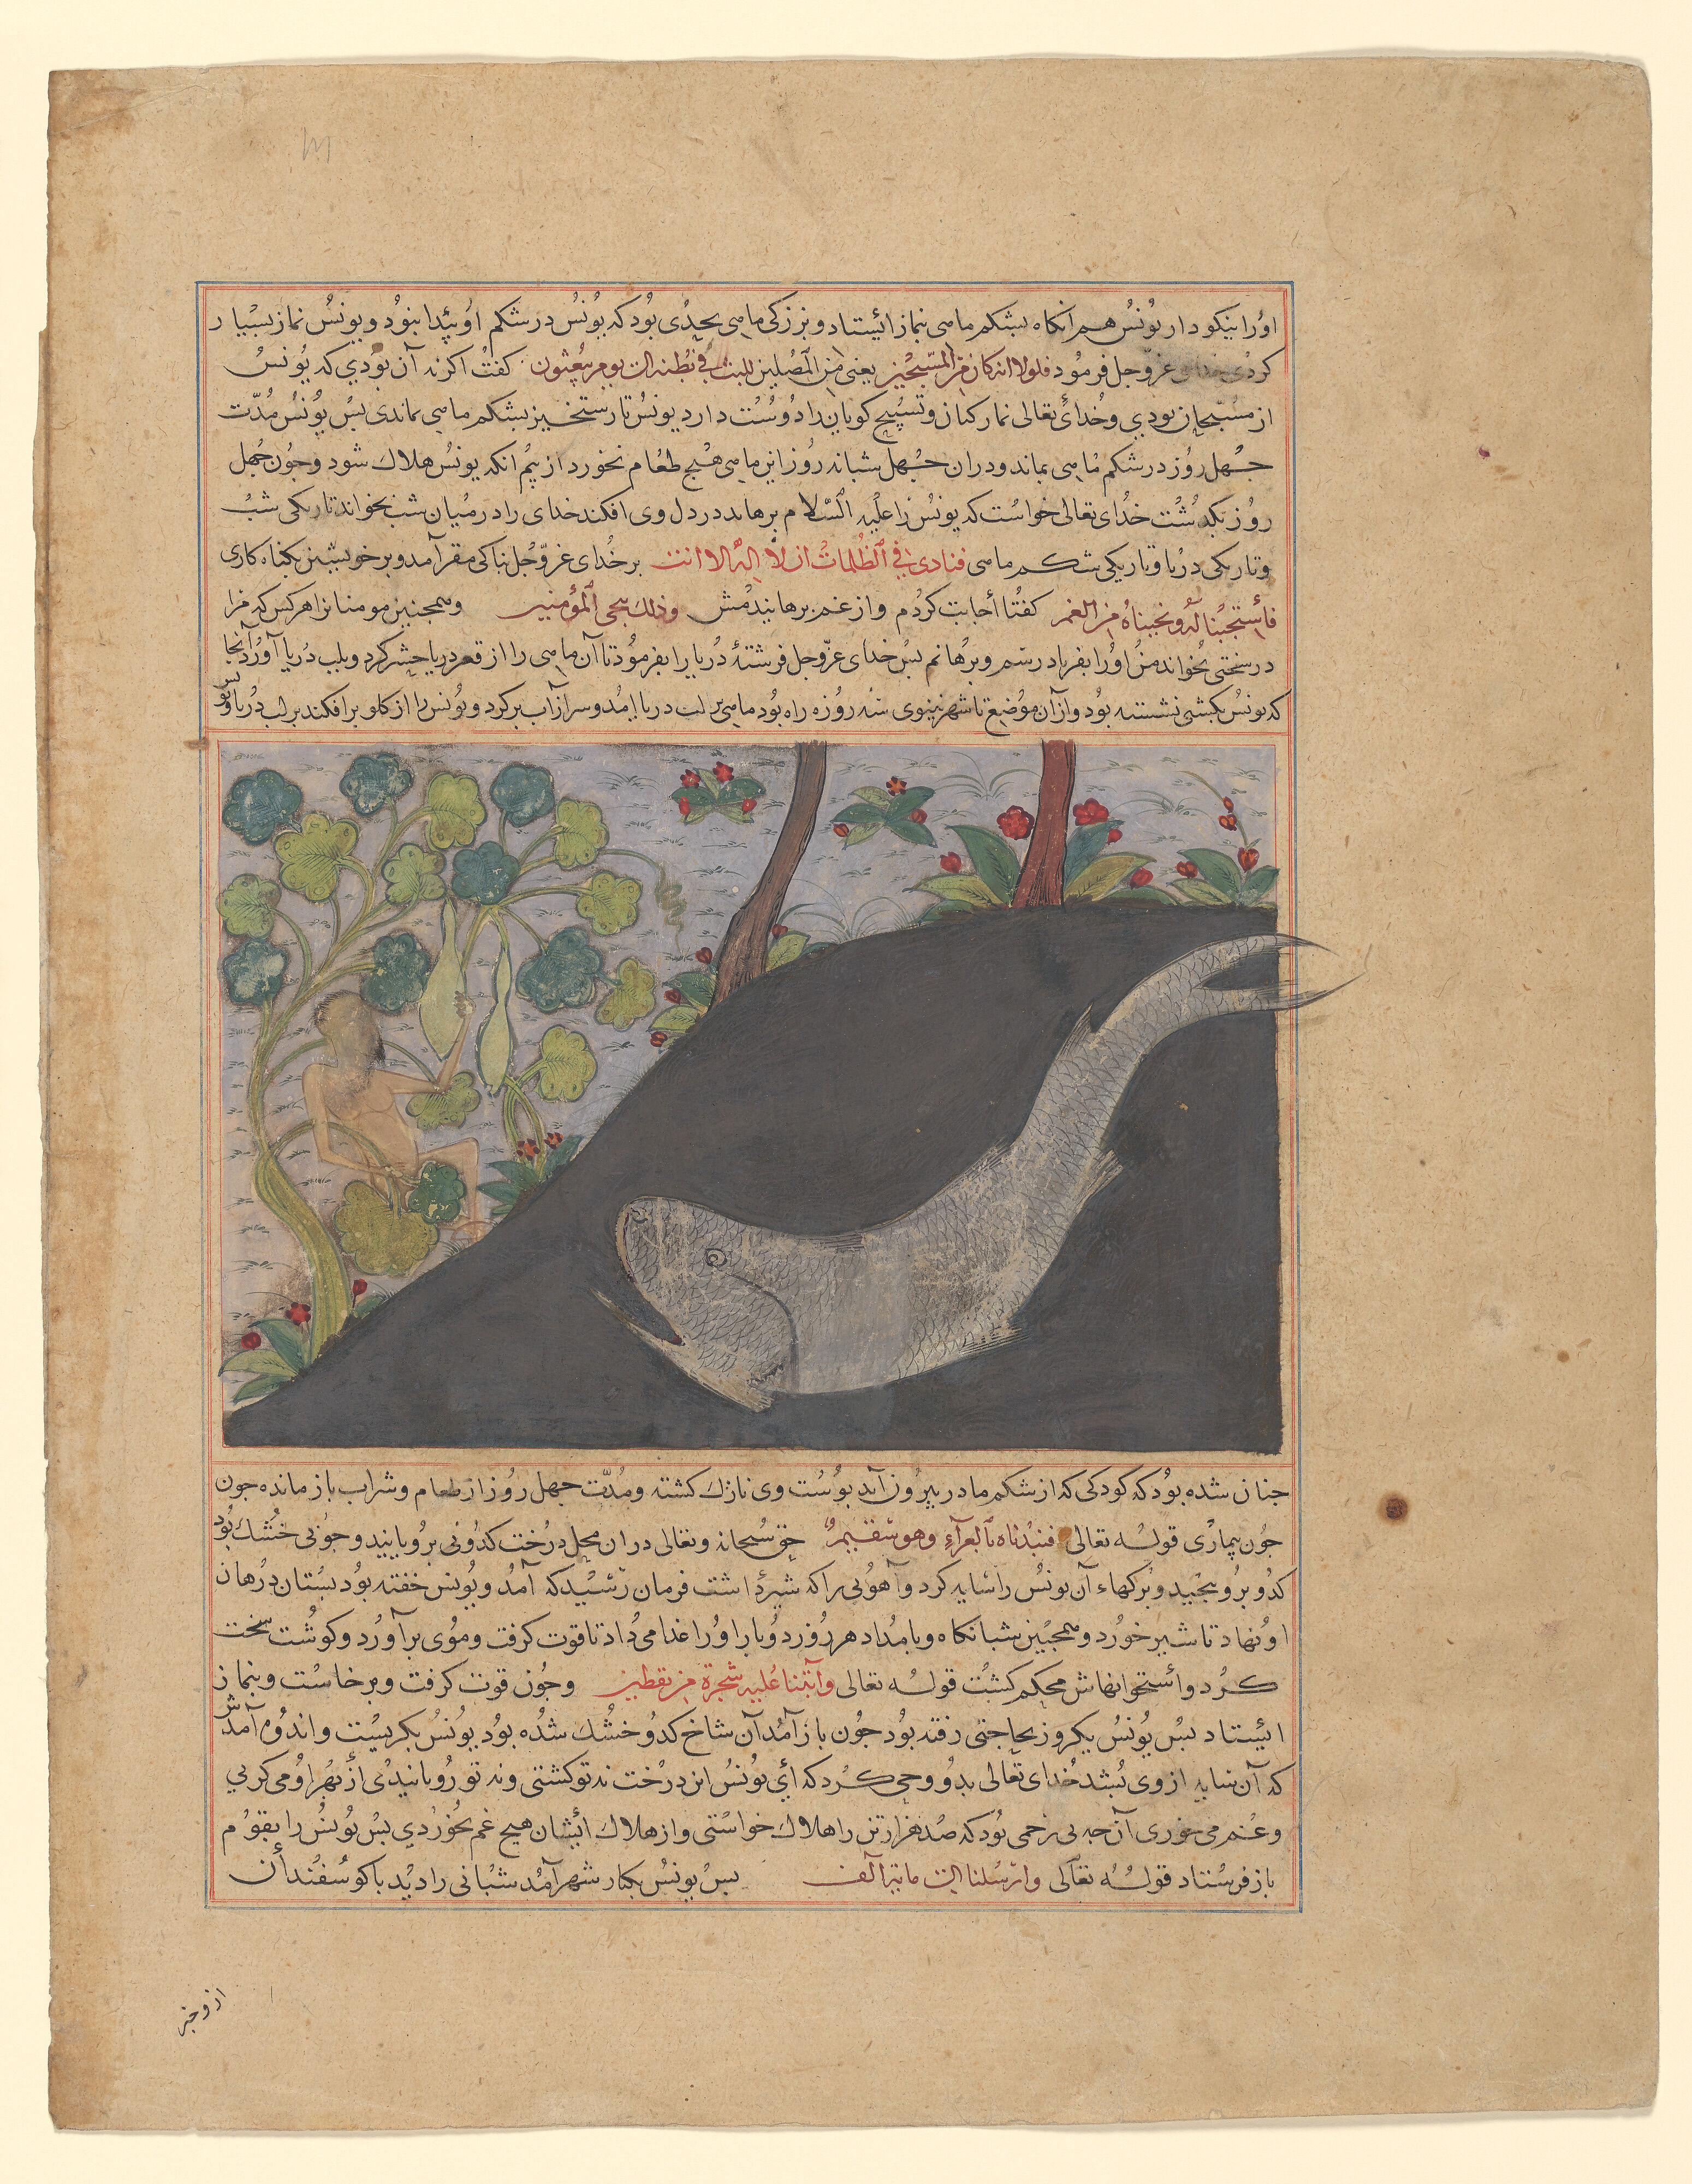 اورا نیکو دار یونس هم آنکاه بشکم ماهی بنماز ائیستاد و بزرکی ماهی بحدی بود که یونس در شکم او پیدا نبود و یونس نماز بسیار
کردی خدای عزوجل فرمود فلولا انه کان من المسبحین یعنی من المصلین للبث فی بطنه الی یوم یبعثون کفت اکر نه آن بودی که یونس
از مسبحان بودی و خدای تعالی نماز کنان و تسبیح کویان را دوست دارد یونس تا رستخیز بشکم ماهی بماندی بس یونس مدت
جهل روز در شکم ماهی بماند و دران جهل شبانه روز این ماهی هیج طعام نخورد از بیم انکه یونس هلاك شود و جون جهل
روز بکدشت خدای تعالی خواست که یونس را علیه السلام برهاند در دل وی افکند خدای را در میان شب بخواند تاریکی شب
و تاریکی دریا و تاریکی شکم ماهی فنادی فی الظلمات ان لا اله الا انت بر خدای عزوجل بناکی مقر آمد و بر خویشتن بکناه کاری
فاستجبنا له و نجیناه من الغم کفتا أجابت کردم و از غم برهانیدمش وذلك ننجی المؤمنین و همجنین مومنانرا هر کس که مرا
در سختی بخواند من اورا بفریاد رسم و برهانم بس خدای عزوجل فرشتهٔ دریا را بفرمود تا آن ماهی را از قعر دریا حشر کرد و بلب دریا آورد آنجا
که یونس بکشتی نشسته بود و از آن موضع تا شهر نینوی سه روزه راه بود ماهی بر لب دریا امد و سر از آب بر کرد و یونس را از کلو بر افکند بر لب دریا و یونس
جنان شده بود که کودکی که از شکم مادر بیرون آید بوست وی نازك کشته و مدت جهل روز از طعام و شراب باز مانده جون
جون بیماری قوله تعالی فنبذناه بالعرآء وهو سقیم حق سبحانه و تعالی دران محل درخت کدوئی برویانید و جوبی خشك بود
کدو برو ببجید و برکهاء آن یونس را سایه کرد و آهوئی را که شیر داشت فرمان رسید که آمد و یونس خفته بود بستان در دهان
او نهاد تا شیر خورد و همجنین شبانکاه و بامداد هر روز دو بار اورا غدا می داد تا قوت کرفت و موی بر آورد و کوشت سخت
کرد و استخوانهاش محکم کشت قوله تعالی وانبتنا علیه شجرة من یقطین و جون قوت کرفت و بر خاست و بنماز
ائیستاد بس یونس یکروز بحاجتی رفته بود جون باز آمد آن شاخ کدو خشك شده بود یونس بکریست و اندوه آمدش
که آن سایه از وی بشد خدای تعالی بدو وحی کرد که أی یونس این درخت نه تو کشتی و نه تو رویانیدی از بهر او می کریی
و غم می خوری آن جه بی رحمی بود که صد هزار تن را هلاك خواستی و از هلاك ائیشان هیج غم نخوردی بس یونس را بقوم
باز فرستاد قوله تعالی وارسلناه الی مایة الف بس یونس بکنار شهر آمد شبانی را دید با کوسفندان